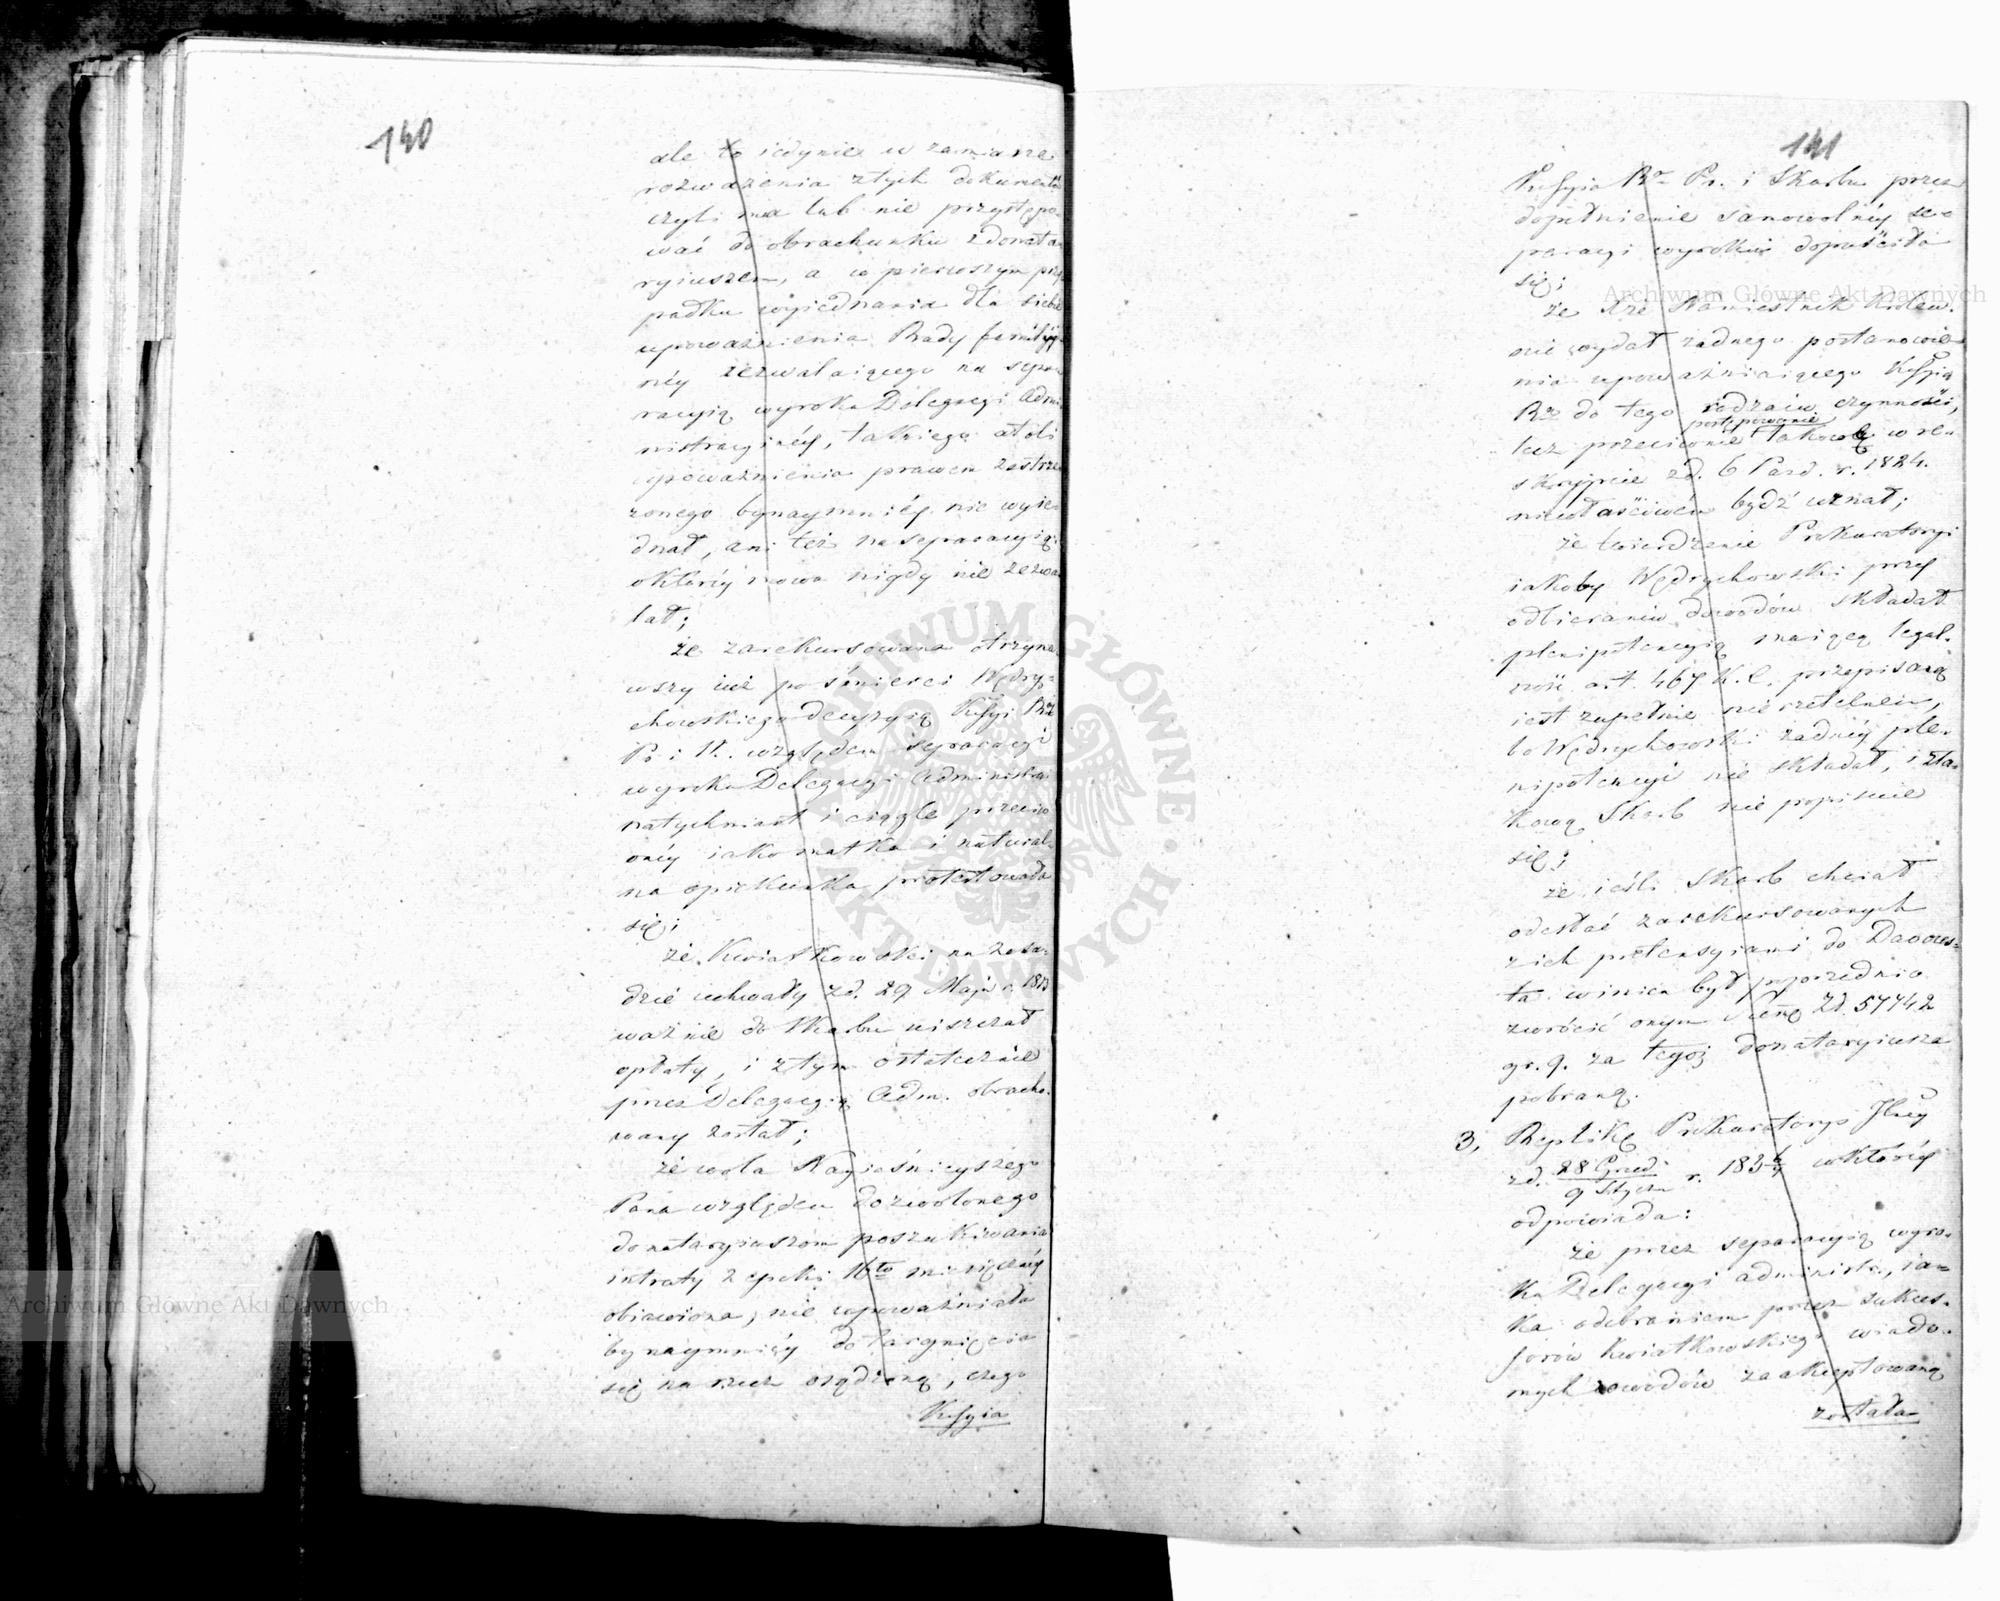 140
ale to iedynie w zamiarze
rozważenia z tych dokumentów
czyli ma lub nie przystępo-
wać do obrachunku z donata-
ryiuszem, a w pierwszym przy-
padku wyiednania dla siebie
upoważnienia Rady familiy-
néy zezwalaiącego na sepa-
racyią wyroku Delegacyi Admi-
nistracyinéy, takiego atoli
upoważnienia prawem zastrze-
żonego bynaymniéy nie wyie-
dnał, ani też na separacyią
o któréy mowa nigdy nie zezwa-
lał;
że zarekursowana otrzyma-
wszy iuż po śmierci Wędry-
chowskiego decyzyią Kssyi Rz.
Pr. i S. względem separacyi
wyroku Delegacyi Administr.
natychmiast i ciągle przeciw
onéy iako matka i natural-
na opiekunka protestowała
się;
że Kwiatkowski na zasa-
dzie uchwały z d. 29 Maja r. 1813
ważnie do Skarbu uiszczał
opłaty, i z tym ostatecznie
przez Delegacyią Adm. obracho-
wany został;
że wola Nayiaśnieyszego
Pana względem dozwolonego
donataryiuszom poszukiwania
intraty z epoki 16to miesięcznéy
obiawiona, nie upoważniała
bynaymniéy do targnięcia
się na rzecz osądzoną, czego
Kssyia
141
Kssyia Rz. Pr. i Skarbu przez
dopełnienie samowolnéy se-
peracyi wyroku dopuściła
się;
że Xże Namiestnik Królew.
nie wydał żadnego postanowie-
nia upoważniaiącego Kssyią
Rz. do tego rodzaiu czynności,
postępowanie
lecz przeciwnie takowe w re-
skrypcie z d. 6 Pazd. r. 1824.
niewłaściwém bydź uznał;
że twierdzenie Prokuratoryi
iakoby Wędrychowski przy
odbieraniu dowodów składał
plenipotencyią maiącą legal-
ność art. 467 K. C. przepisaną
iest zupełnie nierzetelném,
bo Wędrychowski żadnéy ple-
nipotencyi nie składał, i z ta-
kową Skarb nie popisze
się;
że ieśli Skarb chciał
odesłać zarekursowanych
z ich pretensyiami do Davous-
ta winien był poprzednio
zwrócić onym summę Zł. 57742
gr. 9. za tegoż donataryiusza
pobraną.
3. Replikę Prokuratoryi Jlnéy
z d. 28 Grud. / 9 Stycz. r. 183 6/7 w któréy
odpowiada:
że przez separacyią wyro-
ku Delegacyi administr., ia-
ka odebraniem przez sukces-
sorów Kwiatkowskiego wiado-
mych dowodów zaakceptowaną
została
Archiwum Główne Akt Dawnych
Archiwum Główne Akt Dawnych
ARCHIWUM GŁÓWNE AKT DAWNYCH